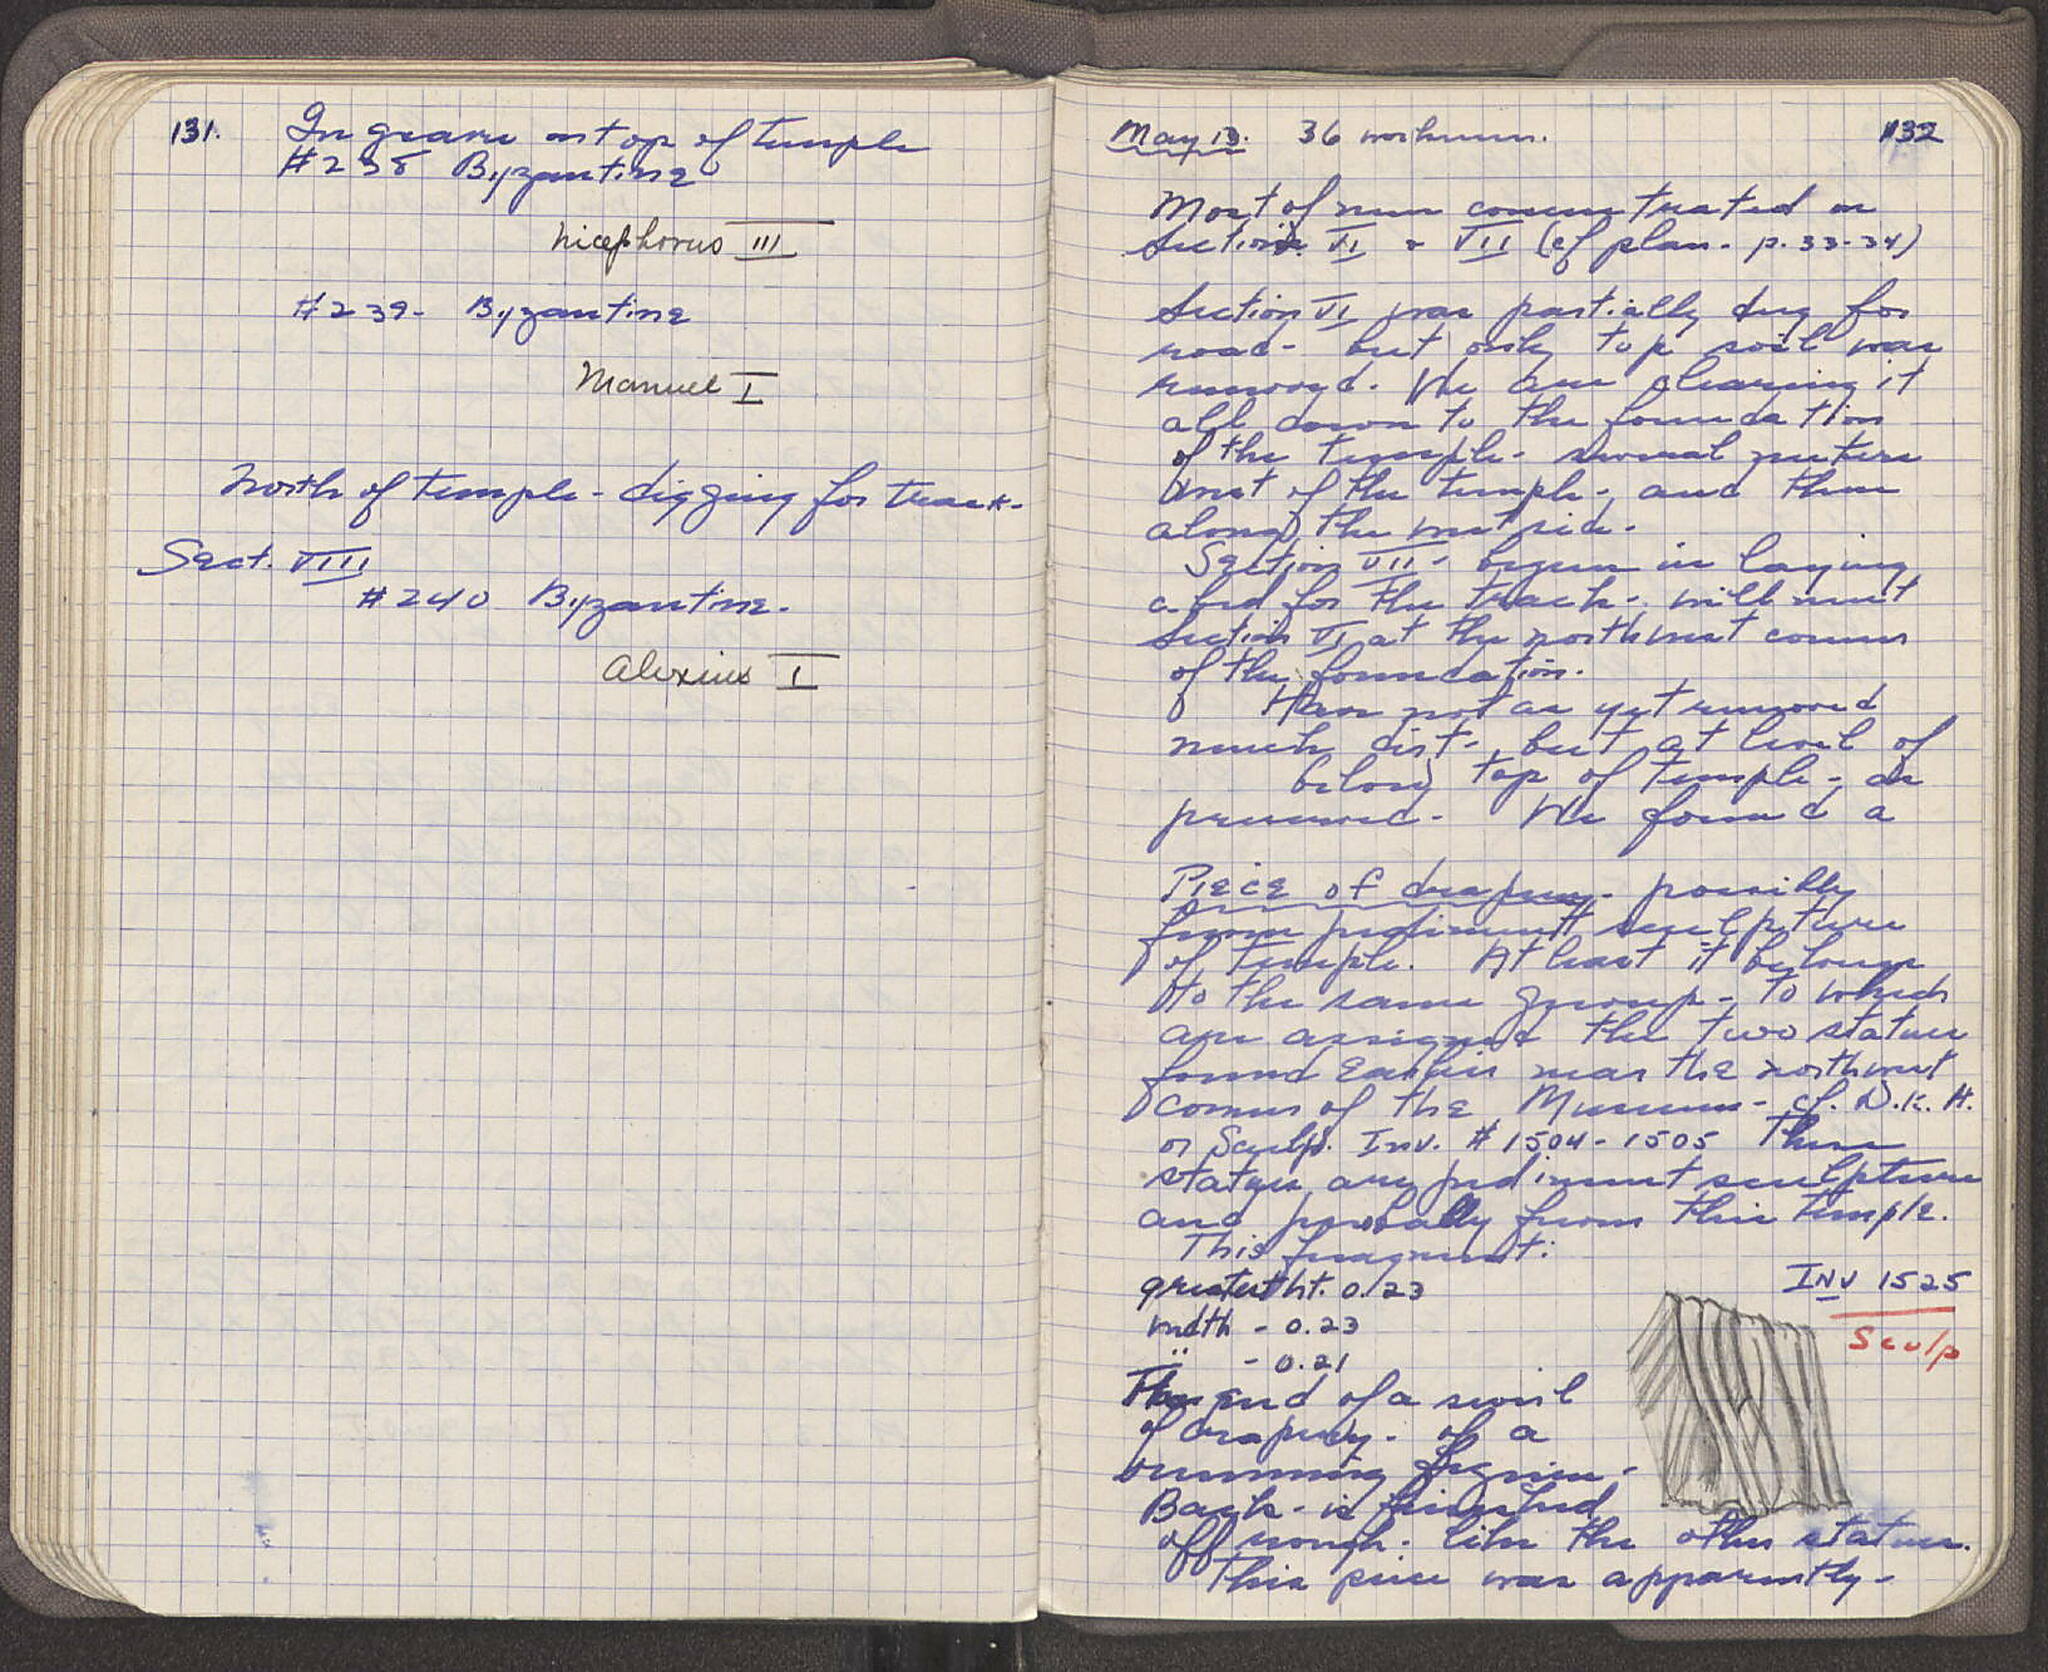 131.
In grave on top of temple
#238 Byzantine
Nicephorus III
#239- Byzantine
Manuel I
North of temple - digging for track.
Sect. VIII
#240 Byzantine.
Alexius I
May 13. 36 workmen. 132
Most of men concentrated on
Section VI & VII (cf plan - p. 33-34)
Section VI was partially dug for
road - but only top soil was
removed. We are clearing it
all down to the foundation
of the temple - several meters
west of the temple - and then
along the west side.
Section VII - begun in laying
a bed for the track - will meet
Section VI at the northwest corner
of the foundation.
Have not as yet removed
much dirt - but at level of
below top of temple - as
preserved - We found a
Piece of drapery - possibly
from pediment sculpture
of temple. At least it belongs
to the same group - to which
are assigned the two statues
found earlier near the northwest
corner of the Museum - cf. N.K. H.
or Sculp. Inv. #1504-1505 These
statues are pediment sculpture
and probably from this temple.
This fragment:
greatest ht. 0.23
width - 0.23
" - 0.21
INV 1525
Sculp
The end of a swirl
of drapery - of a
running figure -
Back - is finished
off rough - like the other statues.
This piece was apparently -